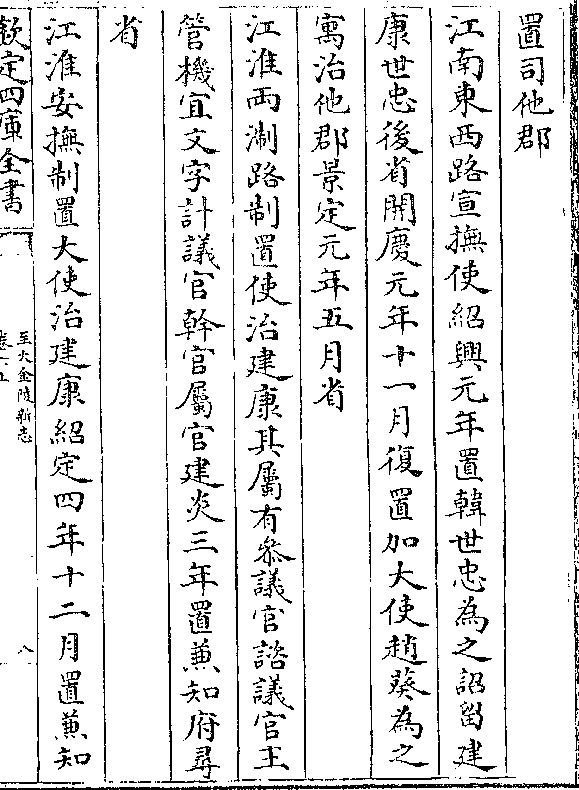 置司他郡
江南東西路宣撫使紹興元年置韓世忠為之詔留建
康世忠後省開慶元年十一月復置加大使趙葵為之
寓治他郡景定元年五月省
江淮两淛路制置使治建康其屬有叅議官諮議官王
管機宜文字計議官幹官屬官建炎三年置兼知府尋
省
江淮安撫制置大使治建康紹定四年十二月置兼知
欽定四庫全書
至大金陵新志
八